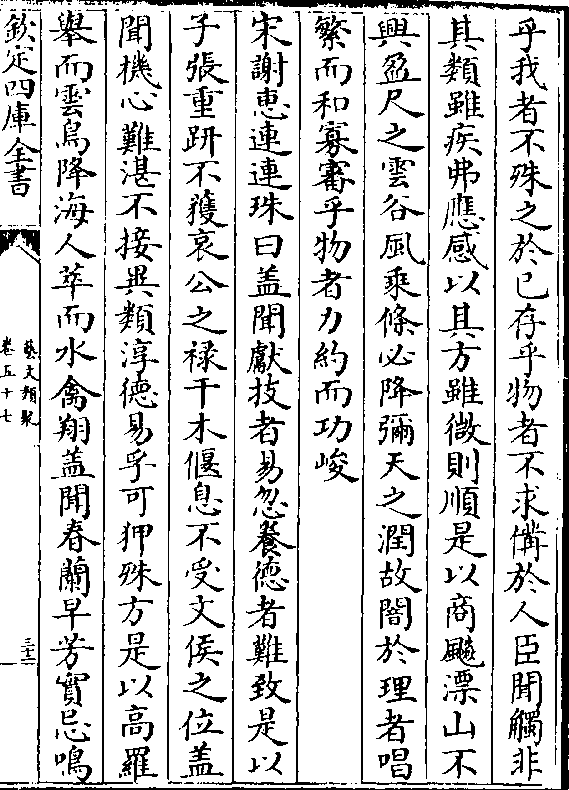 乎我者不殊之於已存乎物者不求備於人臣聞觸非
其類雖疾弗應感以其方雖微則順是以商飈漂山不
興盈尺之雲谷風乘條必降彌天之潤故闇於理者唱
繁而和寡審乎物者力約而功峻
宋謝惠連連珠曰盖聞獻技者易忽養德者難致是以
子張重趼不獲哀公之禄干木偃息不受文侯之位盖
聞機心難湛不接異類淳德易孚可狎殊方是以高羅
舉而雲鳥降海人萃而水禽翔盖聞春蘭早芳實忌鳴
欽定四庫全書
藝文類聚
卷五十七
三十二